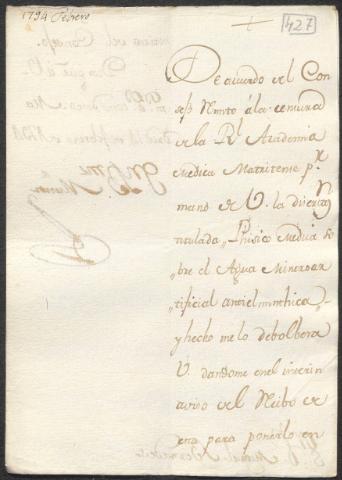 1794 Febrero
427
De acuerdo del Con
sejo Rmito á la censura d
de la Rl. Academia
Medica Matritense pr.
mano de V. la disertan.
titulada Phisico Medica so
bre el Agua Minero ar
tificial antielminthica,
y hecho me lo debolbera
V. dandome en el interin
aviso del Recibo de
esta para ponerlo en